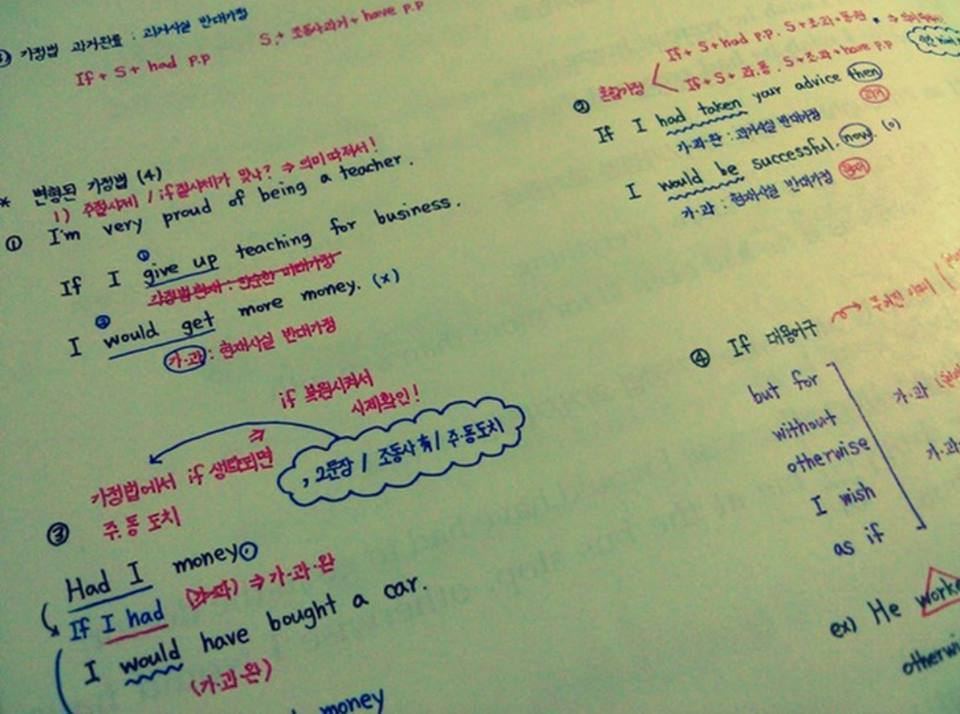 가정법 과거완료 : 과거사실 반대가정
If + S + had p.p S + 조동사과거 + have p.p
* 변형된 가정법 (4)
1) 주절시제 / if절시제가 맞나? ⇒ 의미 따져서!
① I'm very proud of being a teacher.
①
If I give up teaching for business.
가정법현재 : 단순한 미래가정
②
I would get more money. (x)
가·과 : 현재사실 반대가정
if 복원시켜서
시제확인!
, 2문장 / 조동사 有 / 주·동도치
③ 가정법에서 if 생략되면
주·동 도치
Had I money
If I had (가·과) ⇒ 가·과·완
I would have bought a car.
(가·과·완)
money
② 혼합가정 If + S + had p.p. S + 조·과 + 동원
If + S + 과·동. S + 조·과 + have p.p
If I had taken your advice then
과거
가·과·완 : 과거사실 반대가정
I would be successful. now. (o)
현재
가·과 : 현재사실 반대가정
④ If 대용어구
but for
without
otherwise
I wish
as if
가·과
가·과
ex) He worke
otherwi